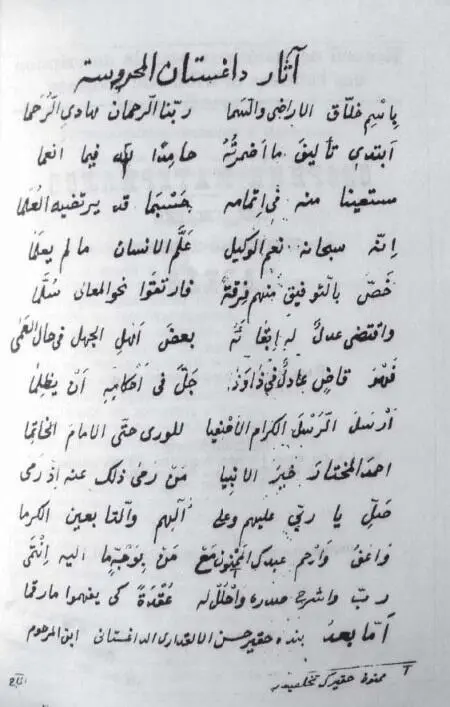 آثار داغستان المحروسة
باسم خلّاق الاراضى والسما ربّنا الرحمان هادى الرحما
ابتدى تأليف ما اضمرتُهُ حامدًا لله فيما انعما
مستعينا منه فى اتمامه حسبما قد يرتضيه العلما
انّه سبحانه نعم الوكيل علّم الانسان ما لم يعلما
خصّ بالتوفيق منهم فرقةً فارتقوا نحو المعالى سلّما
واقتضى عدلٌ له ابقاءَهُ بعض اهل الجهل فى حال العمى
فهو قاضٍ عادلٌ فى جلّ فى احكامه ان يظلما
ارسل الرسل الكرام للورى حتى الامام الخاتما
احمد المختار خير الانبيا من رمى ذلك عنه اذ رمى
صلّ يا ربّى عليهم وعلى آلهم والتابعين الكرما
واعف وارحم عبدك الممنون مع من بوجهٍ ما اليه انتمى
ربّ واشرح صدره واحلل له عقدةً كى يفهموا ما رقما
امّا بعد بنده حقير حسن الالقدارى الداغستانى ابن المرحوم
١ ممنون حقيرك تخلصيدر